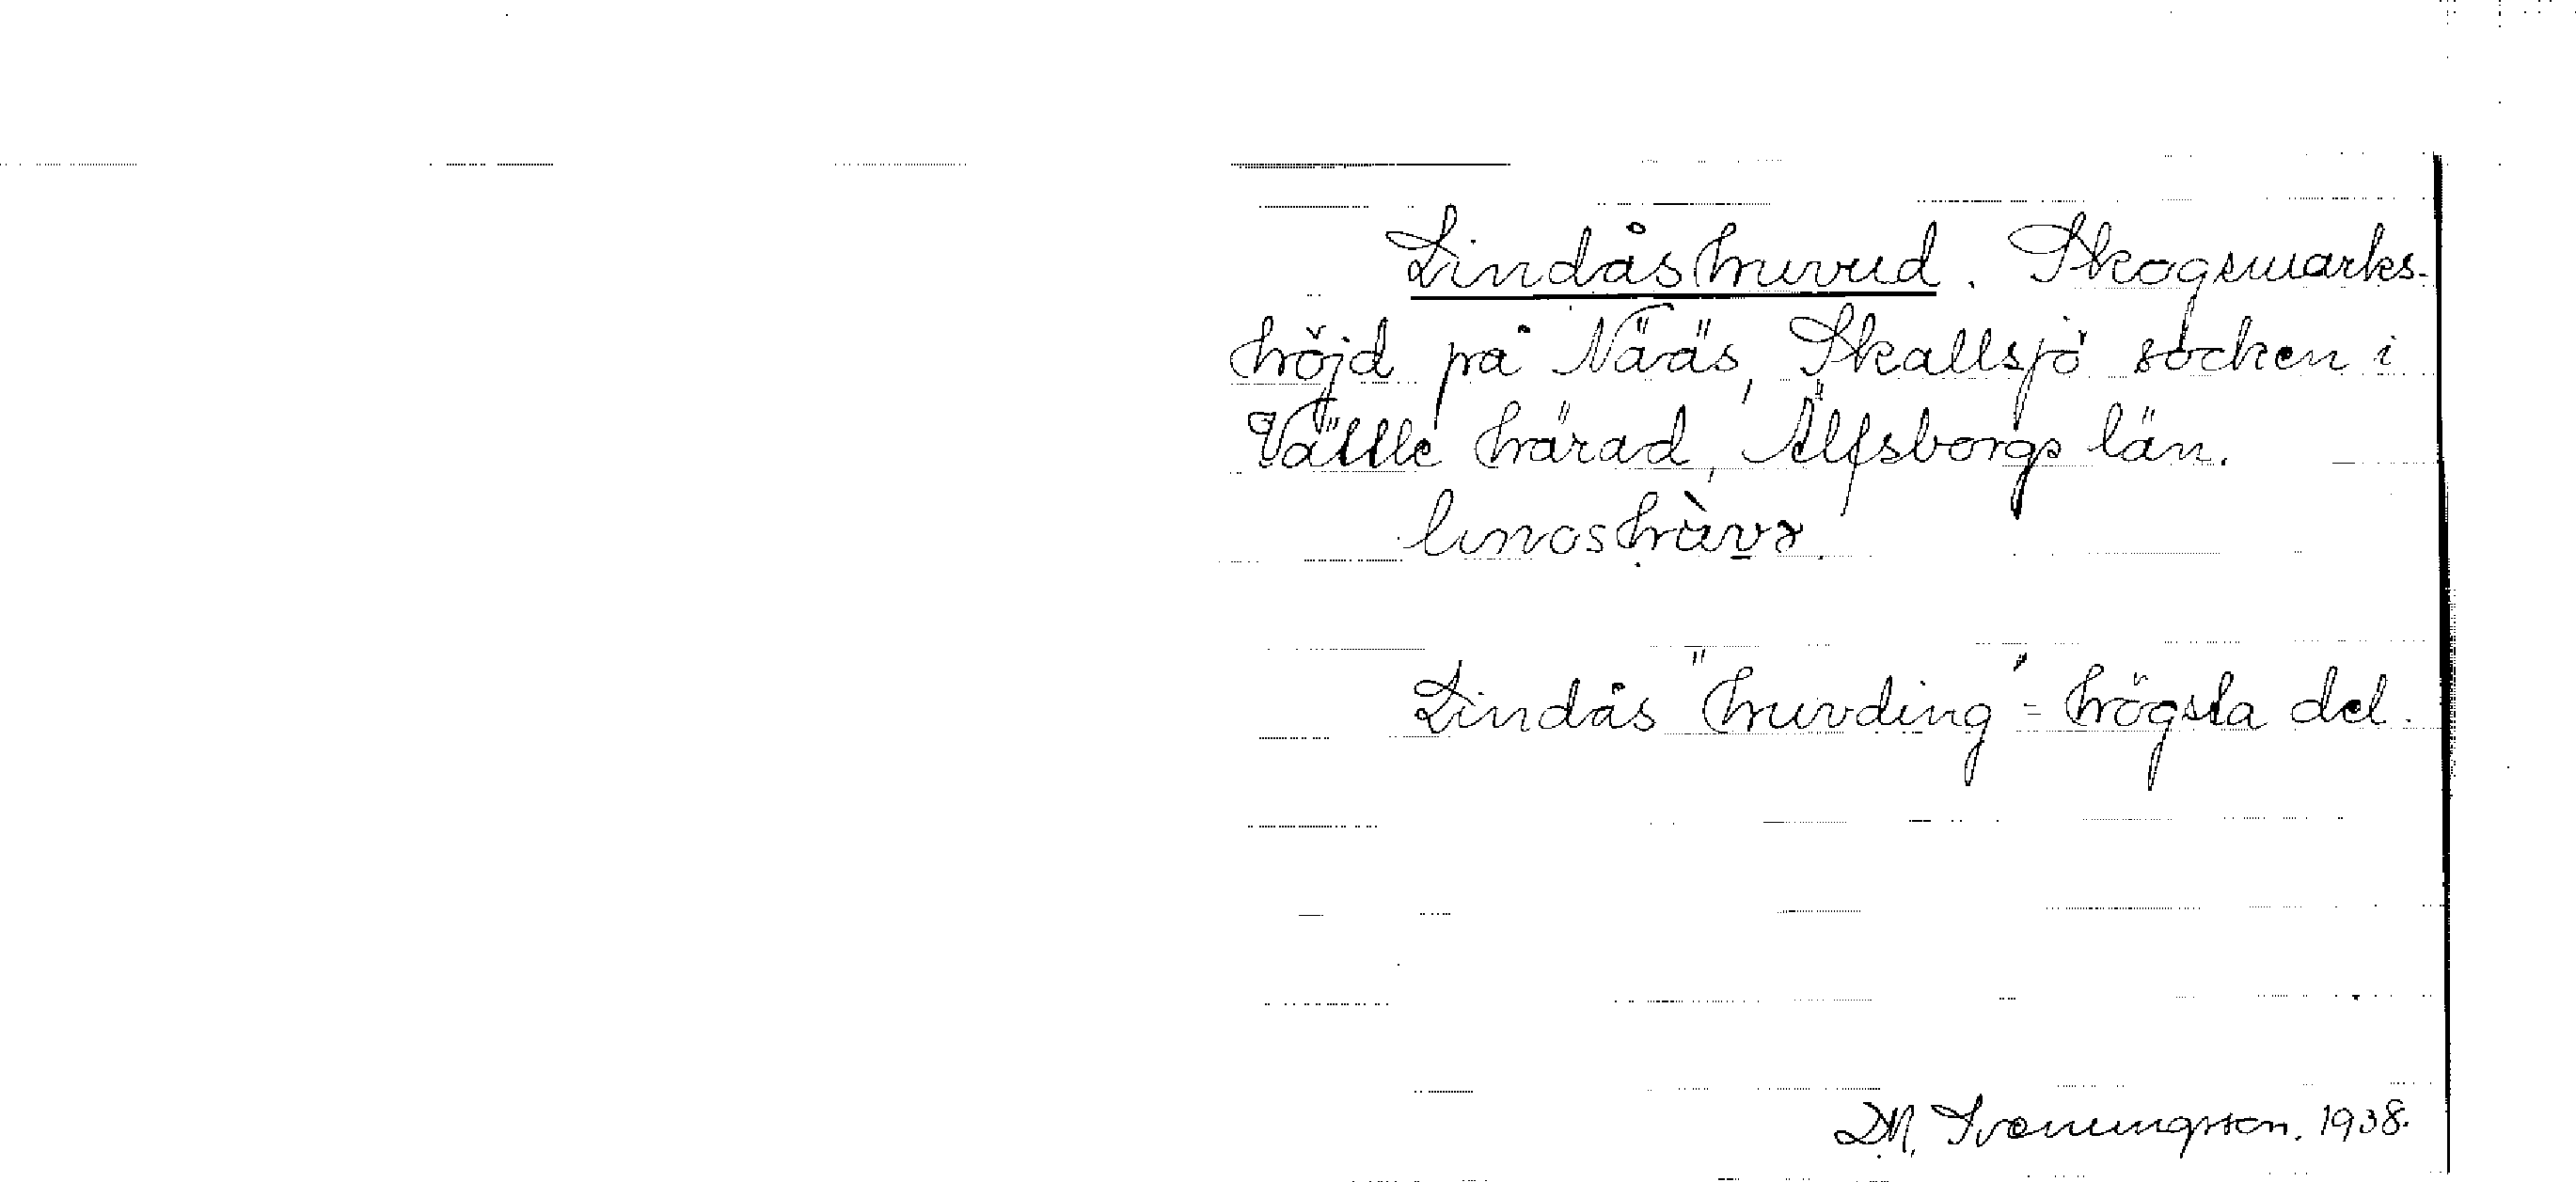 Lindåshuvud. Skogsmarks-
höjd på Nääs, Skallsjö socken i
Vättle härad, Älfsborgs län.
Lindås "huvding" = högsta del.
D.M. Svenningsson. 1938.